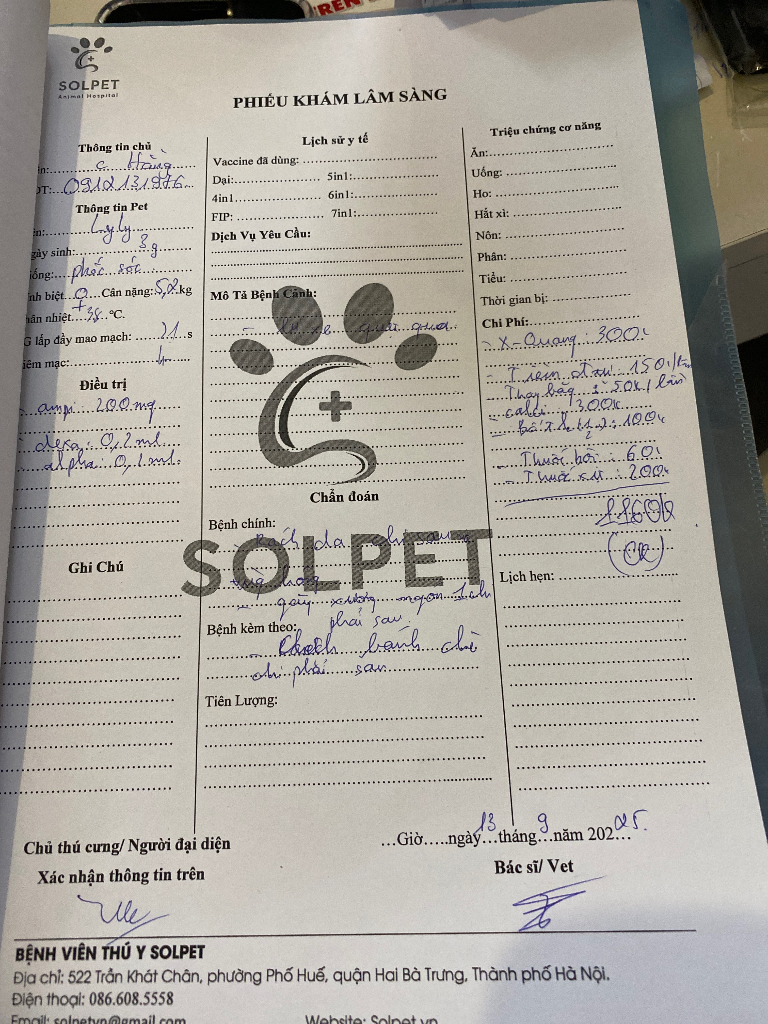 SOLPET
Animal Hospital
PHIẾU KHÁM LÂM SÀNG
Thông tin chủ
c Hằng
ĐT: 0912131976
Thông tin Pet
Lyly
gày sinh: 3g
iống: phốc sóc
nh biệt: Cân nặng: 5,2 kg
ân nhiệt: 38 °C.
G lấp đầy mao mạch: 21 s
iêm mạc:
Điều trị
- ampi 200 mg
- dexa: 0,2 ml
- alpha: 0,1 ml.
Ghi Chú
Lịch sử y tế
Vaccine đã dùng:
Dại: 5in1:
4in1 6in1:
FIP: 7in1:
Dịch Vụ Yêu Cầu:
Mô Tả Bệnh Cảnh:
- xe qua
SOLPET
Chẩn đoán
Bệnh chính:
- Rách da chi sau
- gãy xương ngón 1 chi
phải sau.
Bệnh kèm theo:
- bánh chè
chi phải sau
Tiên Lượng:
Triệu chứng cơ năng
Ăn:
Uống:
Ho:
Hắt xì:
Nôn:
Phân:
Tiểu:
Thời gian bị:
Chi Phí:
- X-Quang: 300k
- Tiêm 150k/
- Thay băng : 50k/lần
- 300k
- 100k
- Thuốc bôi: 60k
- Thuốc : 200k
1160k
(CK)
Lịch hẹn:
...Giờ.....ngày 13 tháng 9 năm 2025.
Chủ thú cưng/ Người đại diện
Xác nhận thông tin trên
Bác sĩ/ Vet
BỆNH VIỆN THÚ Y SOLPET
Địa chỉ: 522 Trần Khát Chân, phường Phố Huế, quận Hai Bà Trưng, Thành phố Hà Nội.
Điện thoại: 086.608.5558
Email: solpetvn@gmail.com Website: Solpet.vn